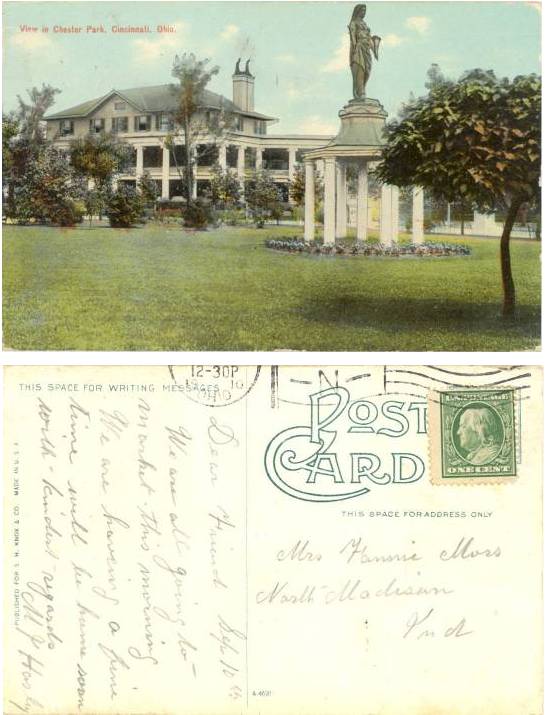 View in Chester Park, Cincinnati, Ohio.
THIS SPACE FOR WRITING MESSAGES
12-30P
19 10
OHIO
N
POST
CARD
ONE CENT
THIS SPACE FOR ADDRESS ONLY
Mrs Fannie Moss
North Madison
Ind
Dear Friend Sep 10th
We are all going to
market this morning
We are having a fine
time will be home soon
with kindest regards
M
PUBLISHED FOR S. H. KNOX & CO. MADE IN U. S. A.